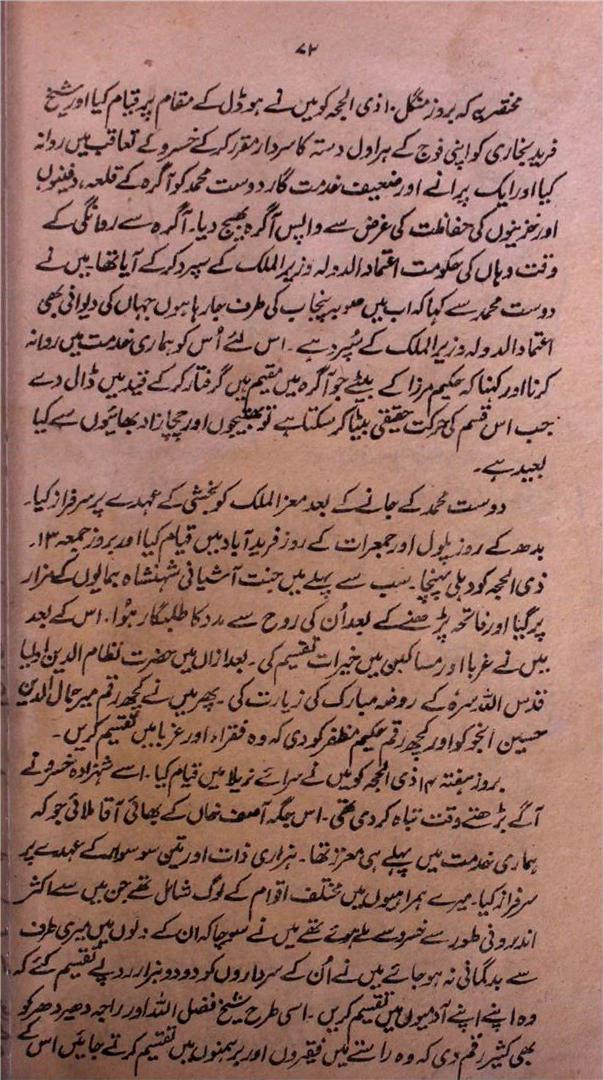 ۷۲
مختصر یہ کہ بروز منگل ۱۰ ذی الحجہ کو میں نے ہوڈل کے مقام پر قیام کیا اور شیخ
فرید بخاری کو اپنی فوج کے ہراول دستہ کا سردار مقرر کر کے خسرو کے تعاقب میں روانہ
کیا اور ایک پرانے اور ضعیف خدمت گار دوست محمد کو آگرہ کے قلعہ، دفینوں
اور خزینوں کی حفاظت کی غرض سے واپس آگرہ بھیج دیا۔ آگرہ سے روانگی کے
وقت وہاں کی حکومت اعتماد الدولہ وزیر الملک کے سپرد کر کے آیا تھا۔ میں نے
دوست محمد سے کہا کہ اب میں صوبہ پنجاب کی طرف جا رہا ہوں جہاں کی دیوانی بھی
اعتماد الدولہ وزیر الملک کے سپرد ہے۔ اس لئے اُس کو ہماری خدمت میں روانہ
کرنا اور کہنا کہ حکیم مرزا کے بیٹے جو آگرہ میں مقیم ہیں گرفتار کر کے قید میں ڈال دے
جب اس قسم کی حرکت حقیقی بیٹا کر سکتا ہے تو بھتیجوں اور چچازاد بھائیوں سے کیا
بعید ہے۔
دوست محمد کے جانے کے بعد معز الملک کو بخشی کے عہدے پر سرفراز کیا۔
بدھ کے روز پلول اور جمعرات کے روز فرید آباد میں قیام کیا اور بروز جمعہ ۱۳۔
ذی الحجہ کو دہلی پہنچا۔ سب سے پہلے میں جنت آشیانی شہنشاہ ہمایوں کے مزار
پر گیا اور فاتحہ پڑھنے کے بعد اُن کی روح سے مدد کا طلبگار ہُوا۔ اس کے بعد
میں نے غربا اور مساکین میں خیرات تقسیم کی۔ بعد ازاں میں حضرت نظام الدین اولیا
قدس اللہ سرہٗ کے روضہ مبارک کی زیارت کی۔ پھر میں نے کچھ رقم میر جمال الدین
حسین انجو کو اور کچھ رقم حکیم مظفر کو دی کہ وہ فقراء اور غربا میں تقسیم کریں۔
بروز ہفتہ ۱۴ ذی الحجہ کو میں نے سرائے نریلا میں قیام کیا۔ اسے شہزادہ خسرو نے
آگے بڑھتے وقت تباہ کر دی تھی۔ اس جگہ آصف خاں کے بھائی آقا ملائی جو کہ
ہماری خدمت میں پہلے ہی معزز تھا۔ ہزاری ذات اور تین سو سوار کے عہدے پر
سرفراز کیا۔ میرے ہمراہیوں میں مختلف اقوام کے لوگ شامل تھے جن میں سے اکثر
اندرونی طور سے خسرو سے ملے ہوئے تھے میں نے سوچا کہ ان کے دلوں میں میری طرف
سے بدگمانی نہ ہو جائے میں نے اُن کے سرداروں کو دو دو ہزار روپے تقسیم کئے کہ
وہ اپنے اپنے آدمیوں میں تقسیم کریں۔ اسی طرح شیخ فضل اللہ اور راجہ دھیر دھر کو
بھی کثیر رقم دی کہ وہ راستے میں فقیروں اور برہمنوں میں تقسیم کرتے جائیں اس کے